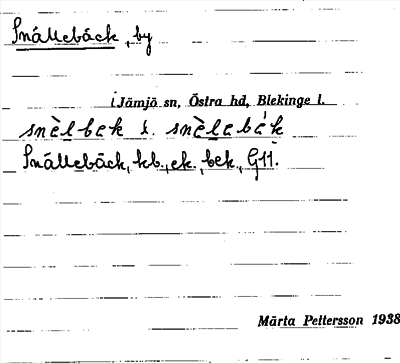 Snållebäck, by
i Jämjö sn, Östra hd, Blekinge l.
snèlbek l. snèlebék
Snållebäck, kb., ek., bek., G11.
Märta Pettersson 1938